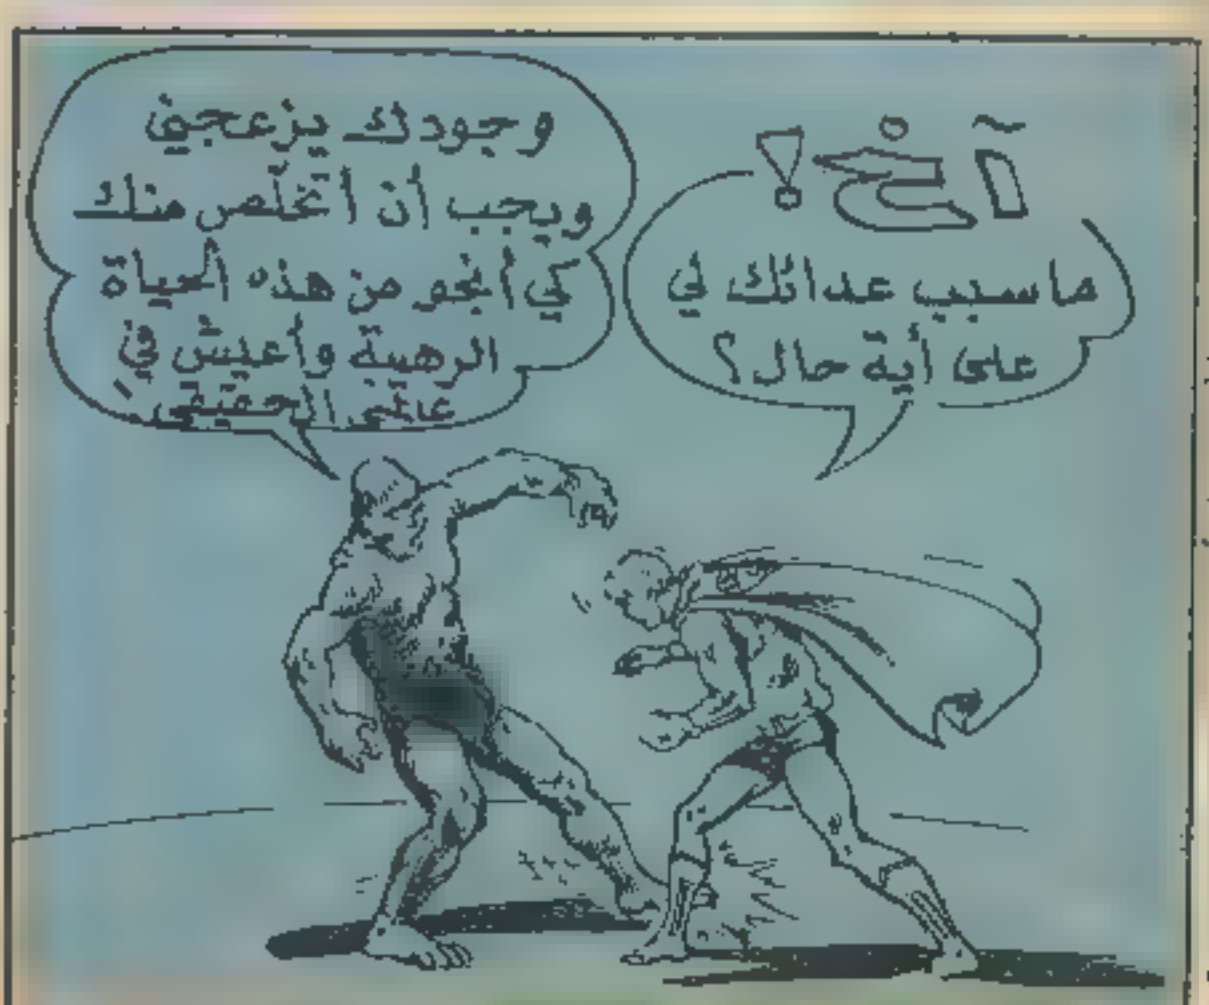 آخ!
ما سبب عدائك لي
على أية حال؟
وجودك يزعجني
ويجب أن أتخلّص منك
كي أنجو من هذه الحياة
الرهيبة وأعيش في
عالمي الحقيقي